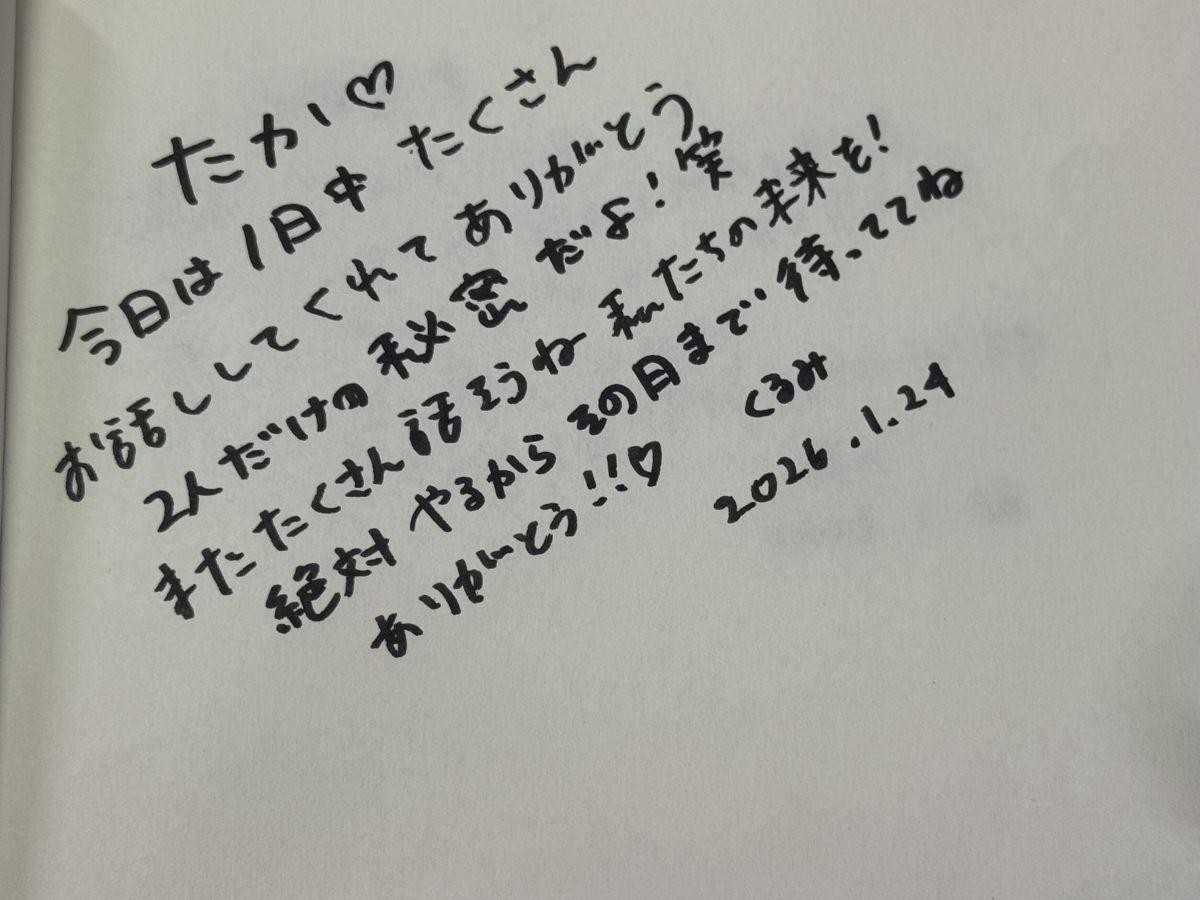 たか♡
今日は1日中 たくさん
お話ししてくれて ありがとう
2人だけの 秘密 だよ！笑
またたくさん 話そうね 私たちの未来を！
絶対 やるから その日まで 待っててね
ありがとう！！♡
くるみ
2026.1.24